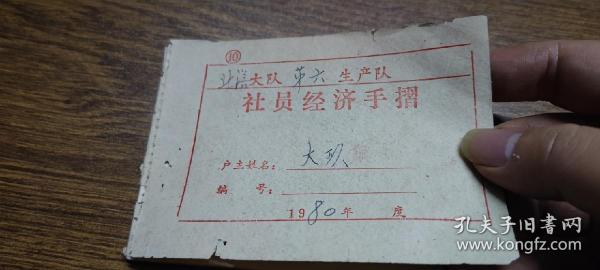 ⑩
北洋大队 第六 生产队
社员经济手摺
户主姓名: 大队
编 号:
1980年 度
孔夫子旧书网
www.kongfz.com